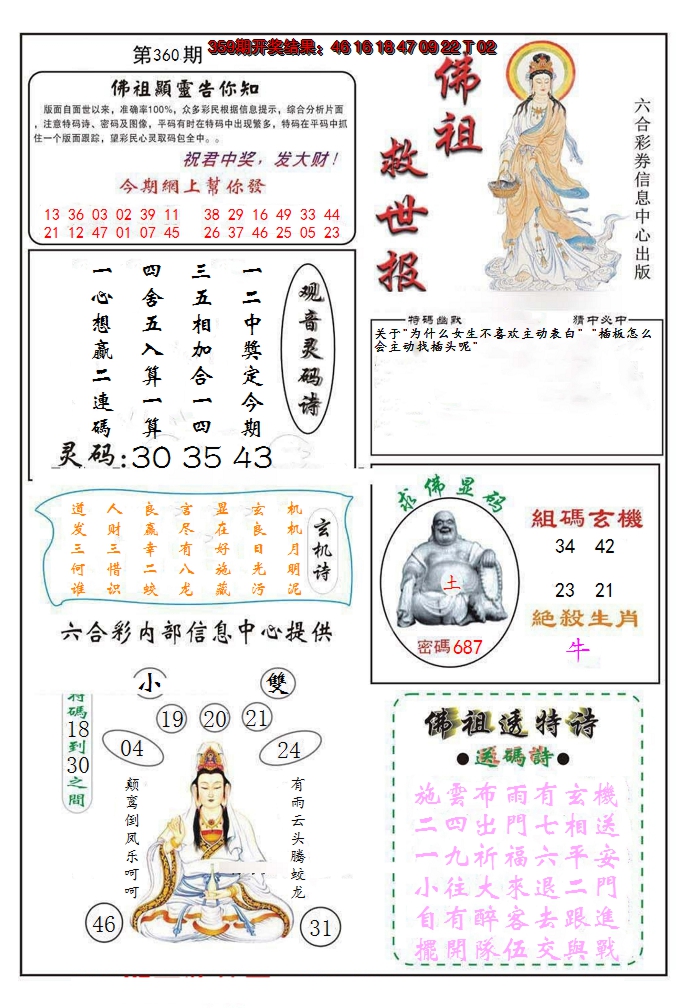 第360期
359期开奖结果：46 16 18 47 09 22 T 02
佛祖顯靈告你知
版面自面世以来，准确率100%，众多彩民根据信息提示，综合分析片面
，注意特码诗、密码及图像，平码有时在特码中出现繁多，特码在平码中抓
住一个版面跟踪，望彩民心灵取码包全中。。
祝君中奖，发大财！
今期網上幫你發
13 36 03 02 39 11 38 29 16 49 33 44
21 12 47 01 07 45 26 37 46 25 05 23
佛祖
救世报
六合彩券信息中心出版
观音灵码诗
一二中獎定今期
三五相加合一四
四舍五入算一算
一心想赢二連碼
灵码:30 35 43
特碼幽默
猜中必中
关于"为什么女生不喜欢主动表白" "插板怎么
会主动找插头呢"
玄机诗
机机月明泥
玄良日光污
显在好施藏
言尽有八龙
良赢幸二蛟
人财三惜识
道发三何谁
六合彩内部信息中心提供
求佛显码
土
密碼687
組碼玄機
34 42
23 21
絶殺生肖
牛
小
雙
特碼18到30之間
19 20 21
04
24
颠鸾倒凤乐呵呵
有雨云头腾蛟龙
46
31
佛祖透特诗
●送碼詩●
施雲布雨有玄機
二四出門七相送
一九祈福六平安
小往大來退二門
自有醉客去跟進
擺開隊伍交與戰